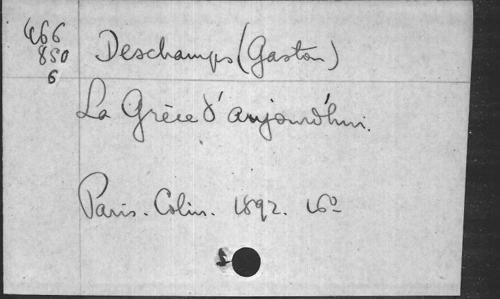 466
850
6
Deschamps (Gaston)
La Grèce d'aujourd'hui.
Paris. Colin. 1892. 16º
5